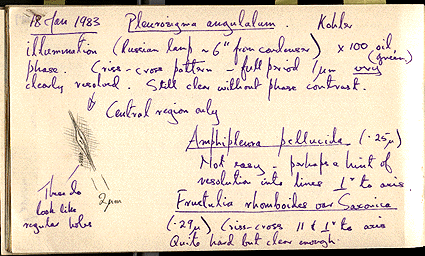 18 Jan 1983 Pleurosigma angulatum. Kohler
illumination (Russian lamp ~ 6" from condenser) x 100 oil
phase. Criss-cross pattern - full period 1µm very (green)
clearly resolved. Still clear without phase contrast.
Central region only
Amphipleura pellucida (·25µ)
Not easy - perhaps a hint of
resolution into lines ⊥r to axis.
Frustulia rhomboides var Saxonica
(·29µ) Criss-cross || & ⊥r to axis
Quite hard but clear enough.
These do
look like
regular holes
2µm